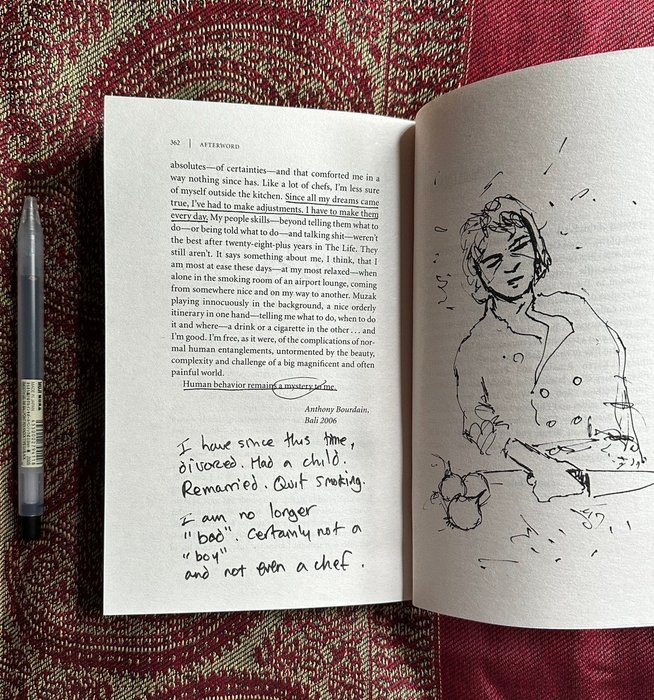 362 | AFTERWORD
absolutes—of certainties—and that comforted me in a
way nothing since has. Like a lot of chefs, I'm less sure
of myself outside the kitchen. Since all my dreams came
true, I've had to make adjustments. I have to make them
every day. My people skills—beyond telling them what to
do—or being told what to do—and talking shit—weren't
the best after twenty-eight-plus years in The Life. They
still aren't. It says something about me, I think, that I
am most at ease these days—at my most relaxed—when
alone in the smoking room of an airport lounge, coming
from somewhere nice and on my way to another. Muzak
playing innocuously in the background, a nice orderly
itinerary in one hand—telling me what to do, when to do
it and where—a drink or a cigarette in the other . . . and
I'm good. I'm free, as it were, of the complications of nor-
mal human entanglements, untormented by the beauty,
complexity and challenge of a big magnificent and often
painful world.
Human behavior remains a mystery to me.
Anthony Bourdain,
Bali 2006
I have since this time,
divorced. Had a child.
Remarried. Quit smoking.
I am no longer
"bad". Certainly not a
"boy"
and not even a chef.